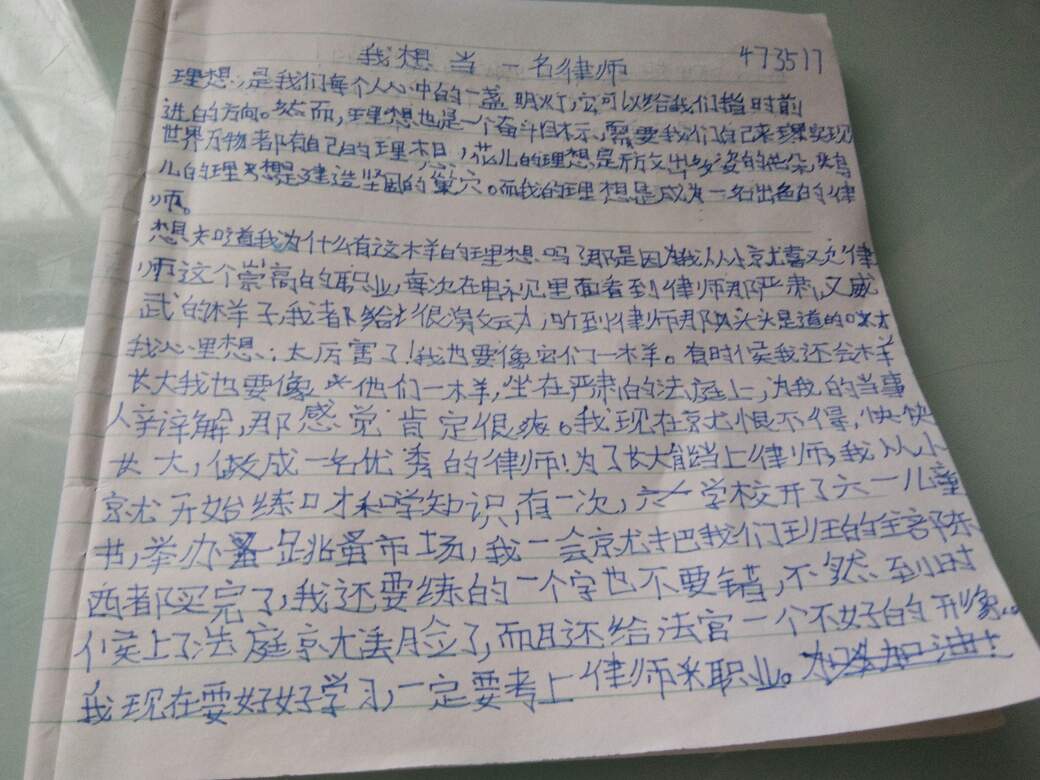 我想当一名律师 473517
理想,是我们每个人心中的一盏明灯,它可以给我们指时前
进的方向。然而,理想也是一个奋斗目标,需要我们自己来实现
世界万物都有自己的理想,花儿的理想是开放出多姿的花朵,鸟
儿的理想是建造坚固的巢穴。而我的理想是成为一名出色的律
师。
想知道我为什么有这样的理想吗?那是因为我从小就喜欢律
师这个崇高的职业,每次在电视里面看到律师那严肃,又威
武的样子,我都给出很激动,听到律师那头头是道的口才
我心里想:太厉害了!我也要像它们一样。有时候我还会
长大我也要像他们一样,坐在严肃的法庭上,为我的当事
人辛详解,那感觉肯定很爽。我现在就恨不得,快快
长大,做成一名优秀的律师!为了长大能当上律师,我从小
就开始练口才和学知识,有一次,学校开了六一儿童
书,举办跳蚤市场,我一会就把我们班的全部陈
西都买完了,我还要练的一个字也不要错,不然到时
候上了法庭就丢脸了,而且还给法官一个不好的形象。
我现在要好好学习,一定要考上律师职业。加油!